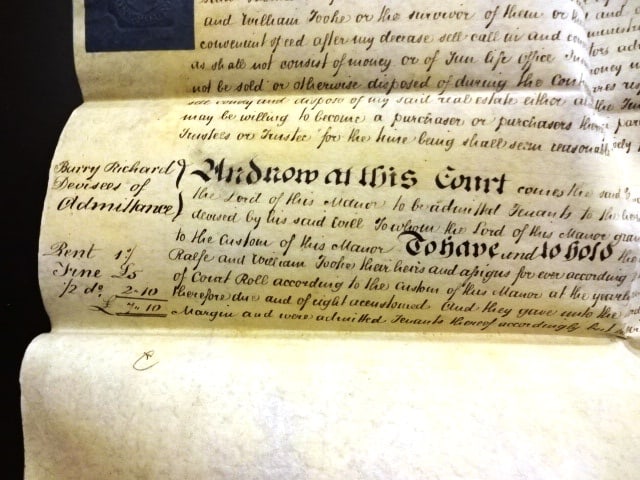 and William Tooke or the survivor of them or
convenient speed after my decease sell call in and
as shall not consist of money or of Fun life office
not be sold or otherwise disposed of during the
sell convey and dispose of my said real estate either
may be willing to become a purchaser or purchasers
Trustees or Trustee for the time being shall seem reasonable
Burry Richard
Devisees of
Admittance
And now at this Court comes the said
the Lord of this Manor to be admitted Tenants to the
devised by his said Will To whom the Lord of this Manor
to the Custom of this Manor To have and to hold the
Ralfe and William Tooke their heirs and assigns for ever according
of Court Roll according to the Custom of this Manor at the
therefore due and of right accustomed And they gave unto the
Margin and were admitted Tenants thereof accordingly but
Rent 1/
Fine £5
1/2 do 2-10
£7-10